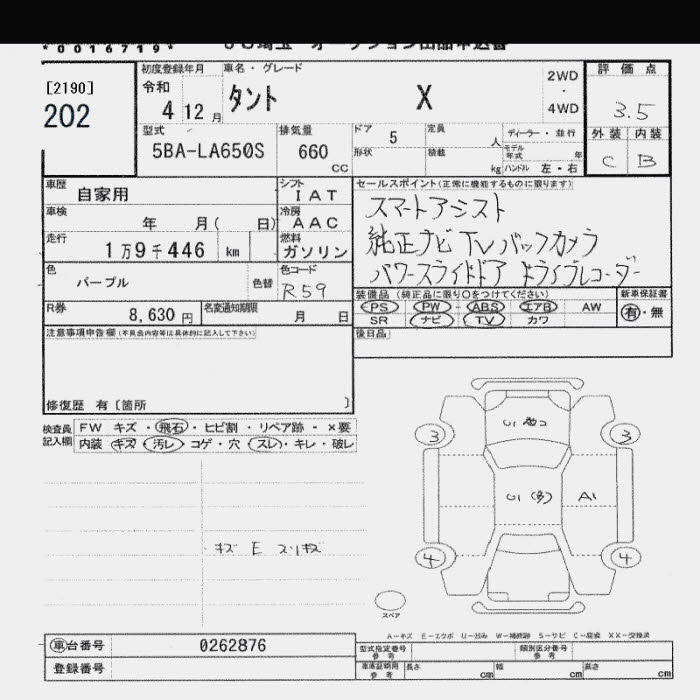 *0016719* JU埼玉 オークション出品申込書
[2190]
202
初度登録年月
令和
4 12 月
車名・グレード
タント X
2WD
・
4WD
評価点
3.5
外装 内装
C B
型式
5BA-LA650S
排気量
660
CC
ドア 5
形状
定員
人
積載
kg
ディーラー・並行
モデル
年式 年
ハンドル 左・右
車歴
自家用
シフト
IAT
車検
年 月( 日)
冷房
AAC
走行
1万9千446 km
燃料
ガソリン
色
パープル
色替
色コード
R59
R券
8,630 円
名変通知期限
月 日
セールスポイント(正常に機能するものに限ります)
スマートアシスト
純正ナビ TV バックカメラ
パワースライドドア ドライブレコーダー
装備品(純正品に限り○をつけてください)
PS PW ABS エアB AW
SR ナビ TV カワ
新車保証書
有・無
後日品
注意事項申告欄(不具合内容等は具体的に記入して下さい)
修復歴 有〔箇所 〕
検査員
記入欄
FW キズ・飛石・ヒビ割・リペア跡・×要
内装 キズ・汚レ・コゲ・穴・スレ・キレ・破レ
キズ E スリキズ
3 3
A1
4 4
スペア
A-キズ E-エクボ U-凹み W-補修跡 S-サビ C-腐食 XX-交換済
車台番号 0262876
登録番号
型式指定番号
参考
類別区分番号
参考
車庫証明用
参考
長さ cm
幅 cm
高さ cm